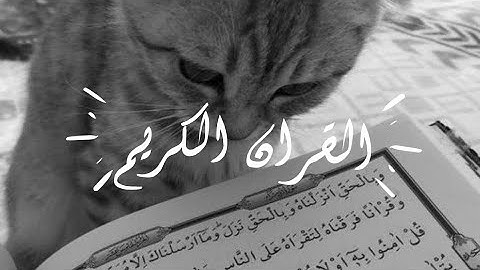 القران الكريم
وَبِالْحَقِّ أَنْزَلْنَاهُ وَبِالْحَقِّ نَزَلَ وَمَا أَرْسَلْنَاكَ إِلَّا
وَقُرْآنًا فَرَقْنَاهُ لِتَقْرَأَهُ عَلَى النَّاسِ
قُلْ آمِنُوا بِهِ أَوْ لَا